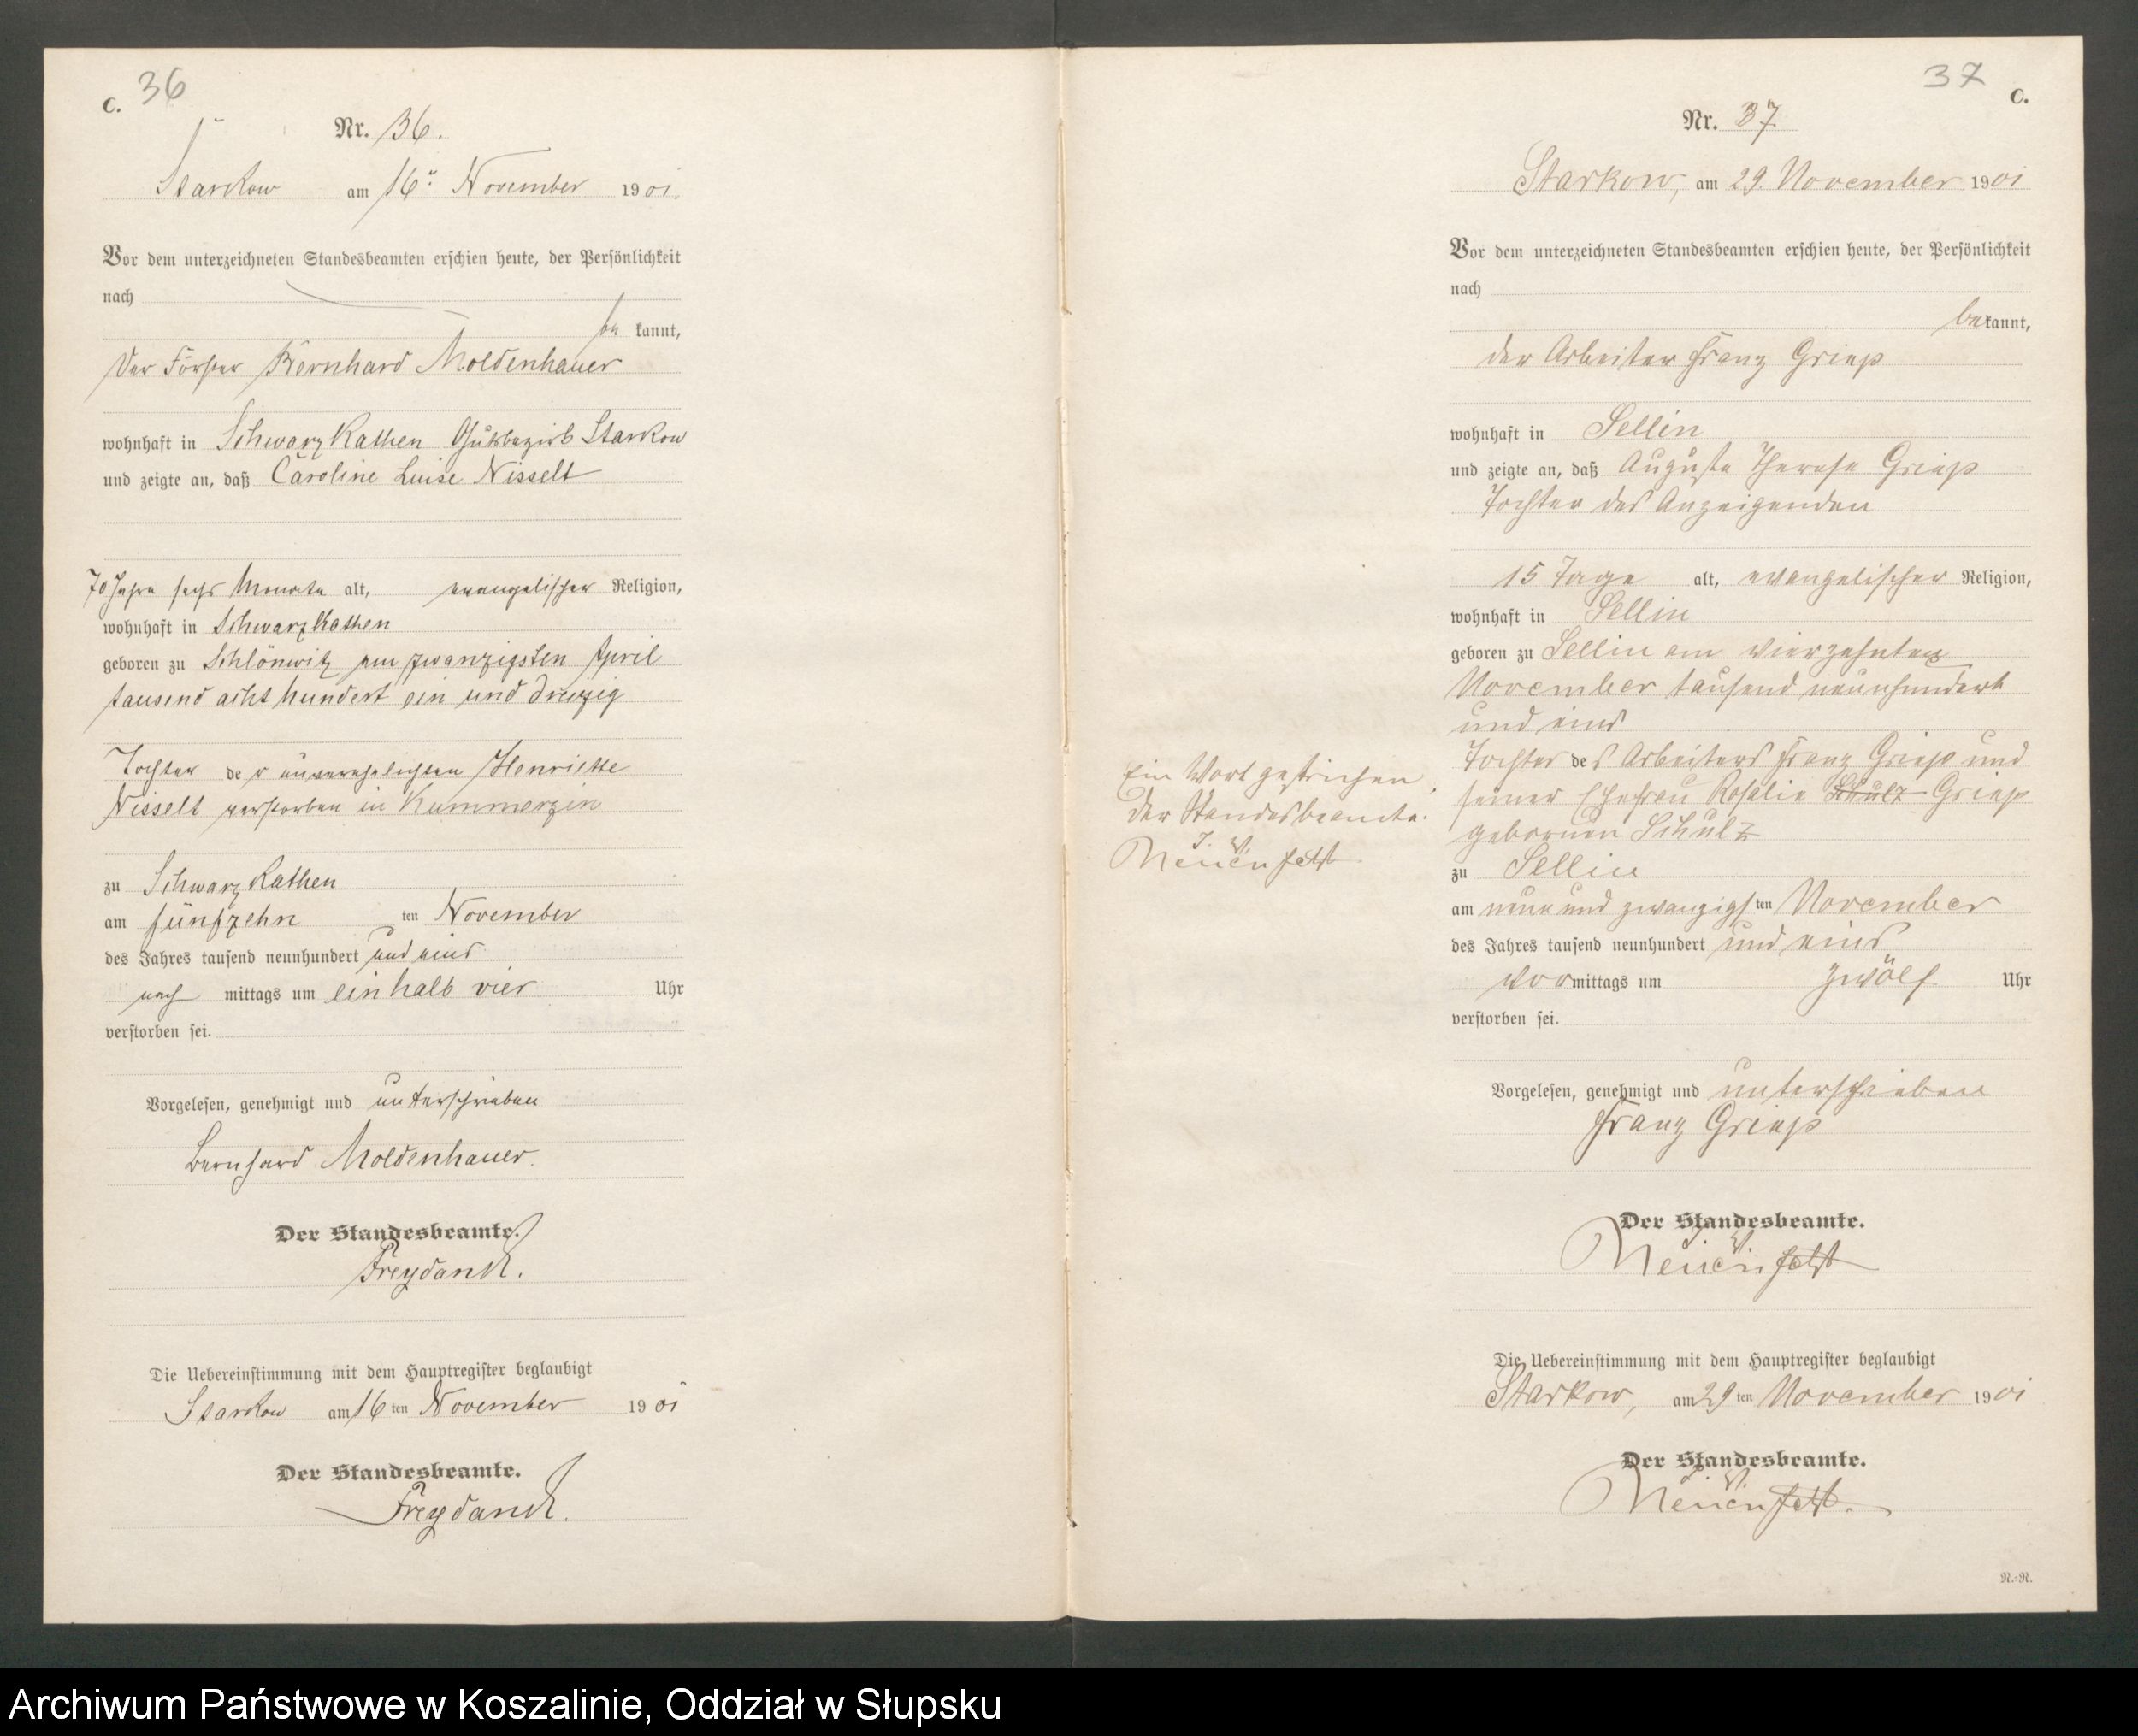 C. 36
Nr. 36.
Starkow am 16ten November 1901.
Vor dem unterzeichneten Standesbeamten erschien heute, der Persönlichkeit
nach
be kannt,
Der Förster Bernhard Moldenhauer
wohnhaft in Schwarz Kathen Gutsbezirk Starkow
und zeigte an, daß Caroline Luise Nisselt
70 Jahre sechs Monate alt, evangelischer Religion,
wohnhaft in Schwarzkathen
geboren zu Schlönwitz am zwanzigsten April
tausend acht hundert ein und dreizig
Tochter der unverehelichten Henriette
Nisselt verstorben in Kummerzin
zu Schwarz Kathen
am fünfzehn ten November
des Jahres tausend neunhundert und eins
nach mittags um ein halb vier Uhr
verstorben sei.
Vorgelesen, genehmigt und unterschrieben
Bernhard Moldenhauer.
Der Standesbeamte.
Freydanck.
Die Uebereinstimmung mit dem Hauptregister beglaubigt
Starkow am 16 ten November 1901
Der Standesbeamte.
Freydanck.
37 C.
Nr. 37
Starkow, am 29. November 1901
Vor dem unterzeichneten Standesbeamten erschien heute, der Persönlichkeit
nach
bekannt,
der Arbeiter Franz Griep
wohnhaft in Sellin
und zeigte an, daß Auguste Therese Griep
Tochter des Anzeigenden
15 Tage alt, evangelischer Religion,
wohnhaft in Sellin
geboren zu Sellin am vierzehnten
November tausend neunhundert
und eins
Tochter des Arbeiters Franz Griep und
seiner Ehefrau Rosalie Schulz Griep
gebornen Schulz
zu Sellin
am neun und zwanzigsten November
des Jahres tausend neunhundert und eins
vormittags um zwölf Uhr
verstorben sei.
Ein Wort gestrichen.
Der Standesbeamte.
J. V.
Neuenfeldt
Vorgelesen, genehmigt und unterschrieben
Franz Griep
Der Standesbeamte.
J. V.
Neuenfeldt
Die Uebereinstimmung mit dem Hauptregister beglaubigt
Starkow, am 29 ten November 1901
Der Standesbeamte.
J. V.
Neuenfeldt.
N.-N.
Archiwum Państwowe w Koszalinie, Oddział w Słupsku